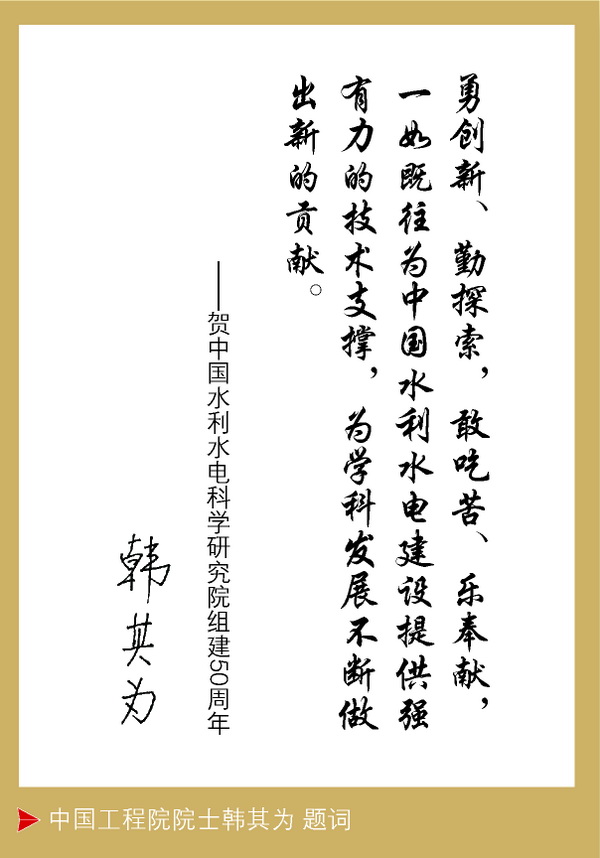 勇创新、勤探索，敢吃苦、乐奉献，
一如既往为中国水利水电建设提供强
有力的技术支撑，为学科发展不断做
出新的贡献。
——贺中国水利水电科学研究院组建50周年
韩其为
中国工程院院士韩其为 题词